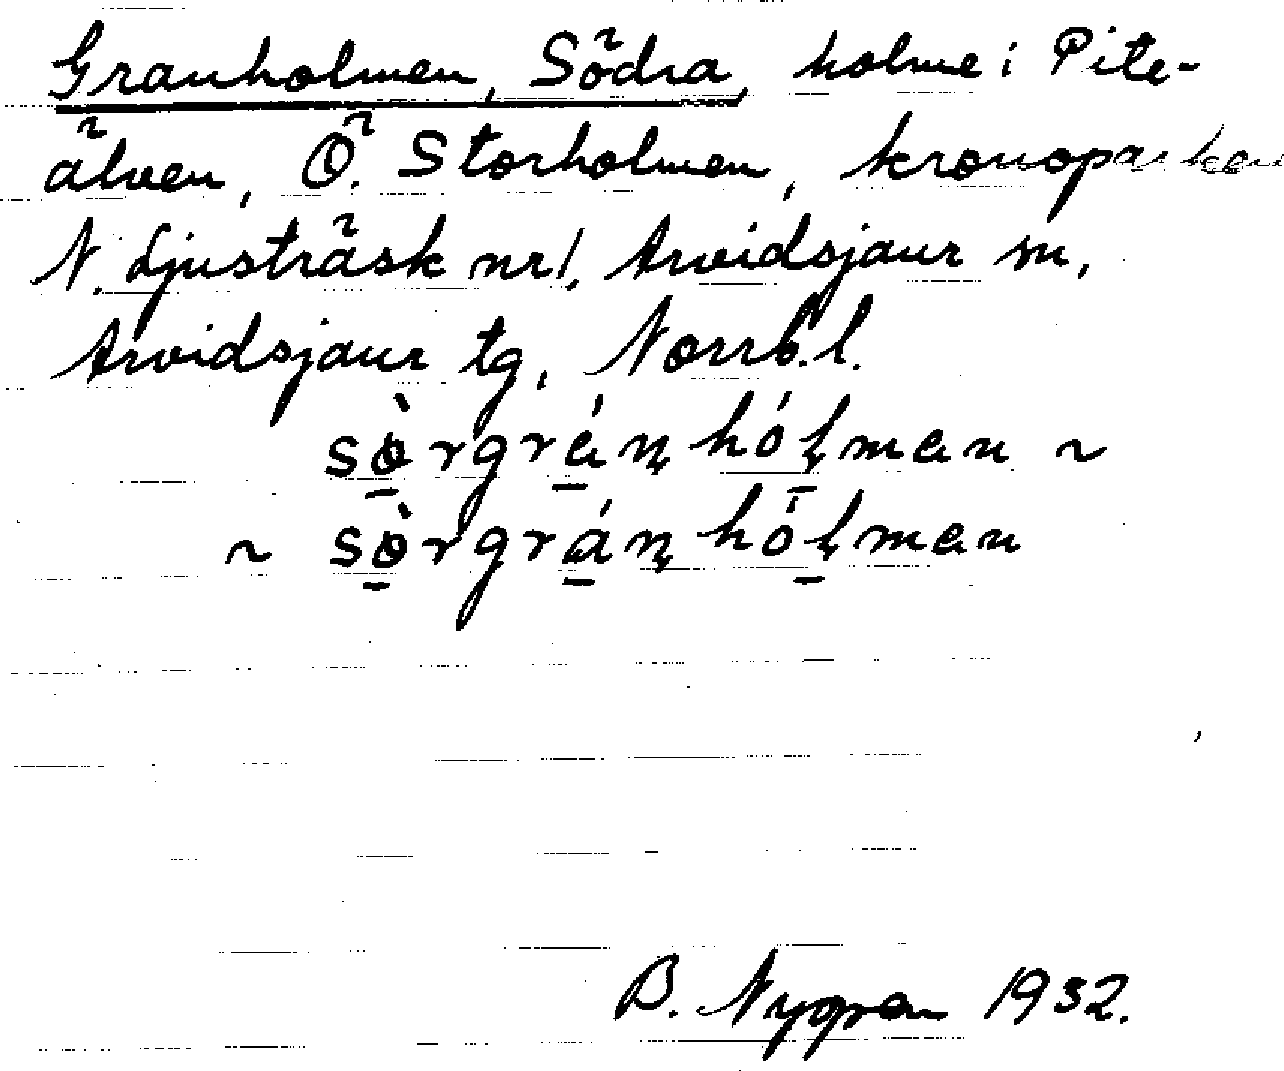 Granholmen, Södra, holme i Pite-
älven, Ö. Storholmen, kronoparken
N. Ljusträsk nr 1, Arvidsjaur sn,
Arvidsjaur tg, Norrb. l.
sò̲rgrá̲ṇhó̲ḷman ~
~ sò̲rgrá̲ṇhó̲ḷman
B. Nygren 1932.